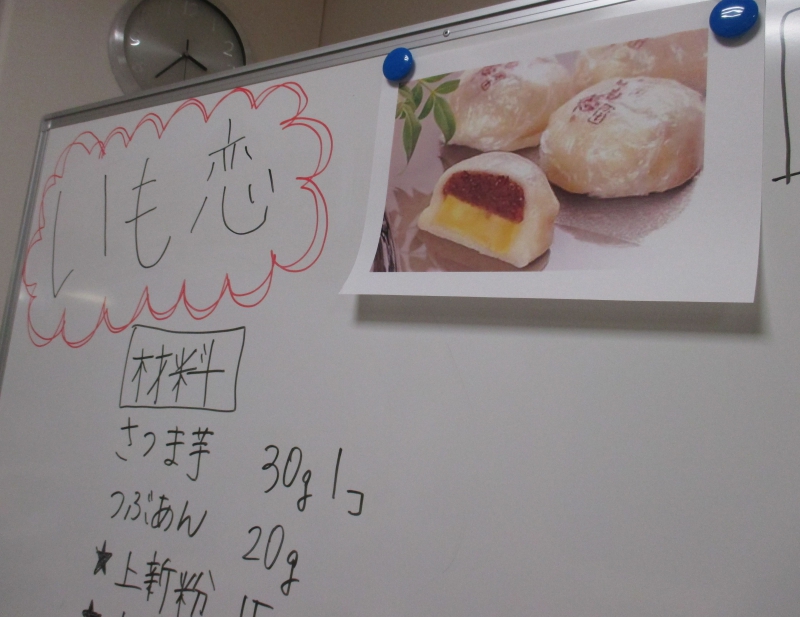 いも恋
材料
さつま芋 30g 1コ
つぶあん 20g
★上新粉 15
★